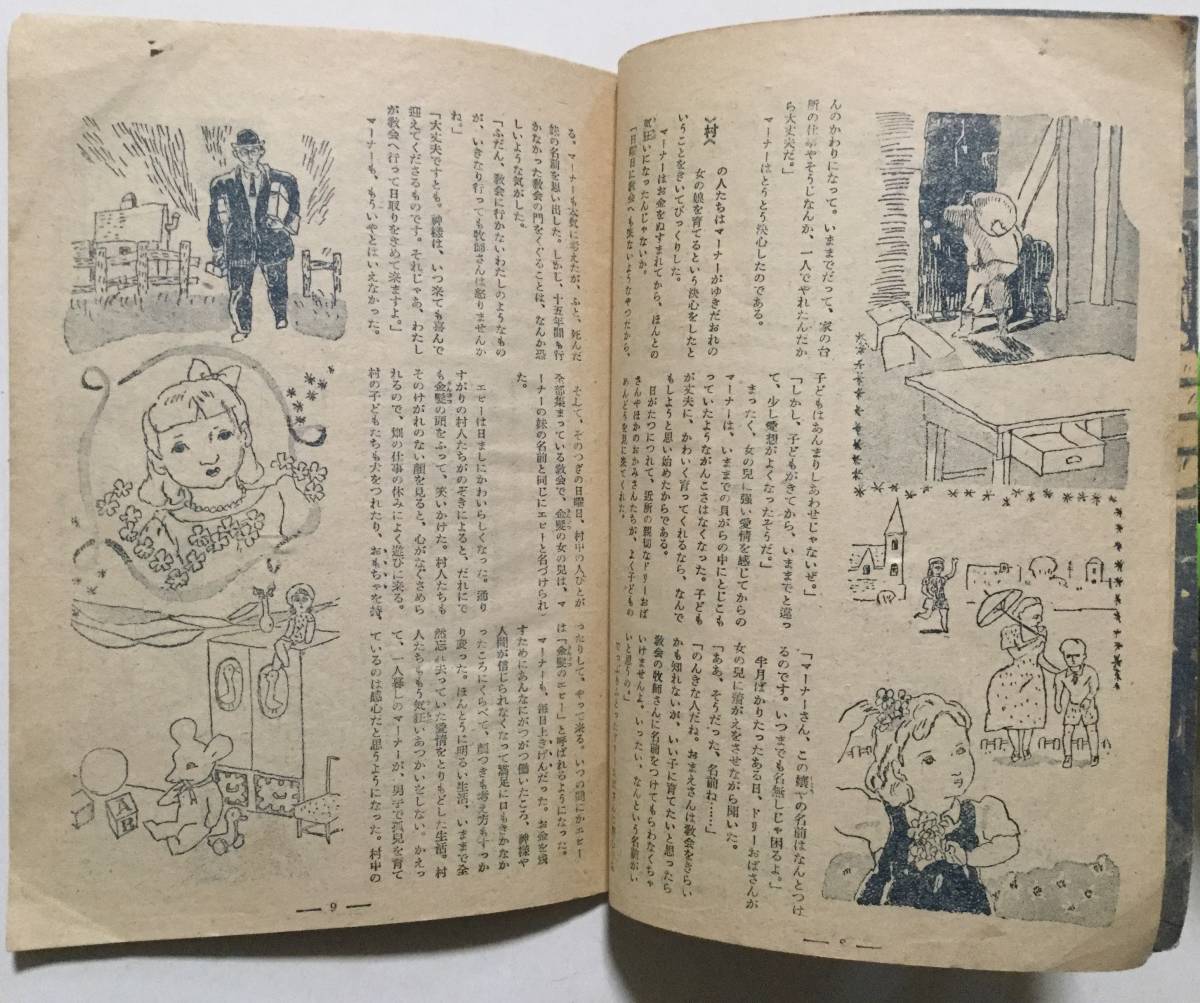 んのかわりになって。いままでだって、家の台
所の仕事やそうじなんか、一人でやれたんだか
ら大丈夫だ。」
マーナーはとうとう決心したのである。
村
の人たちはマーナーがゆきだおれの
女の娘を育てるという決心をしたと
いうことをきいてびっくりした。
マーナーはお金をぬすまれてから、ほんとの
気狂いになったんじゃないか。
「日曜日に教会へも来ないようなやつだから、
子どもはあんまりしあわせじゃないぜ。」
「しかし、子どもがきてから、いままでと違っ
て、少し愛想がよくなったそうだ。」
まったく、女の兒に强い愛情を感じてからの
マーナーは、いままでの貝がらの中にとじこも
っていたようながんこさはなくなった。子ども
が丈夫に、かわいく育ってくれるなら、なんで
もしようと思い始めたからである。
日がたつにつれて、近所の親切なドリーおば
さんやほかのおかみさんたちが、よく子どもの
めんどうを見に来てくれた。
「マーナーさん、この嬢やの名前はなんとつけ
るのです。いつまでも名無しじゃ困るよ。」
半月ばかりたったある日、ドリーおばさんが
女の兒に着がえをさせながら聞いた。
「ああ、そうだった、名前ね……」
「のんきな人だね。おまえさんは教会をきらい
かも知れないが、いい子に育てたいと思ったら
教会の牧師さんに名前をつけてもらわなくちゃ
いけませんよ。いったい、なんという名前がい
いと思うの。」
る。マーナーも本気に考えたが、ふと、死んだ
妹の名前を思い出した。しかし、十五年間も行
かなかった教会の門をくぐることは、なんか恐
しいような気がした。
「ふだん、教会に行かないわたしのようなもの
が、いきなり行っても牧師さんは怒りませんか
ね。」
「大丈夫ですとも。神様は、いつ来ても喜んで
迎えてくださるものです。それじゃあ、わたし
が教会へ行って日取りをきめて来ますよ。」
マーナーも、もういやとはいえなかった。
そして、そのつぎの日曜日、村中の人びとが
全部集まっている教会で、金髪の女の兒は、マ
ーナーの妹の名前と同じにエピーと名づけられ
た。
エピーは日ましにかわいらしくなった。通り
すがりの村人たちがのぞきによると、だれにで
も金髪の頭をふって、笑いかけた。村人たちも
そのけがれのない顔を見ると、心がなぐさめら
れるので、畑の仕事の休みによく遊びに来る。
村の子どもたちも犬をつれたり、おもちゃを持
ったりして、やって来る。いつの間にかエピー
は「金髪のエピー」と呼ばれるようになった。
マーナーも、毎日上きげんだった。お金を残
すためにあんなにがつがつ働いたころ、神様や
人間が信じられなくなって満足に口もきかなか
ったころにくらべて、顔つきも考え方もすっか
り変った。ほんとうに明るい生活、いままで全
然忘れ去っていた愛情をとりもどした生活。村
人たちももう気狂いあつかいをしない。かえっ
て、一人暮しのマーナーが、男手で孤兒を育て
ているのは感心だと思うようになった。村中の
A
B
— 9 —